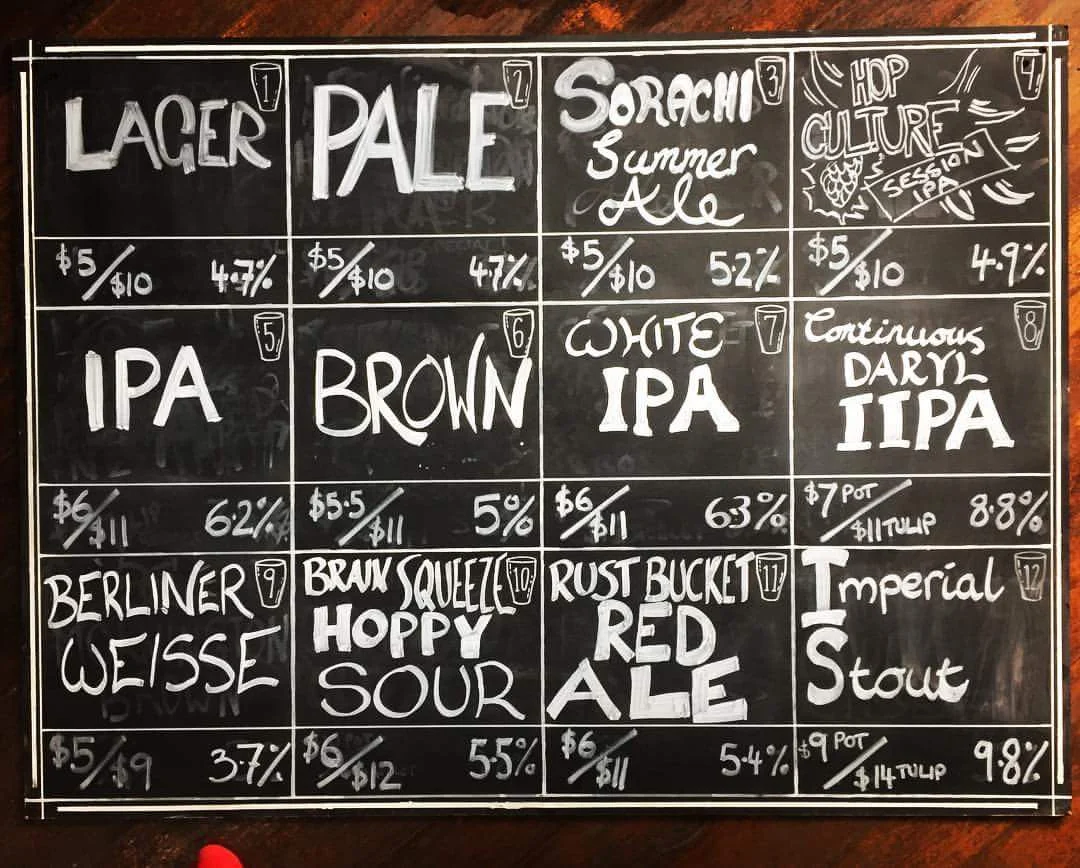 1
LAGER
$5/$10 4.7%
2
PALE
$5/$10 4.7%
3
SORACHI
Summer
Ale
$5/$10 5.2%
4
HOP
CULTURE
SESSION
IPA
$5/$10 4.9%
5
IPA
$6/$11 6.2%
6
BROWN
$5.5/$11 5%
7
WHITE
IPA
$6/$11 6.3%
8
Continuous
DARYL
IIPA
$7 POT/$11 TULIP 8.8%
9
BERLINER
WEISSE
$5/$9 3.7%
10
BRAIN SQUEEZE
HOPPY
SOUR
$6/$12 5.5%
11
RUST BUCKET
RED
ALE
$6/$11 5.4%
12
Imperial
Stout
$9 POT/$14 TULIP 9.8%